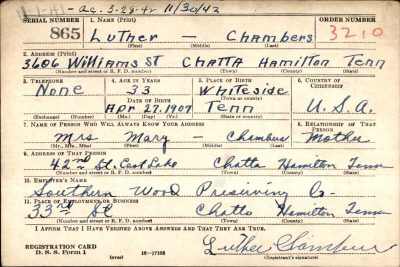 1-A1- ac. 3-28-42 11/30/42
SERIAL NUMBER 1. NAME (Print) ORDER NUMBER
865 Luther — Chambers 3210
(First) (Middle) (Last)
2. ADDRESS (Print)
3606 Williams St Chatta Hamilton Tenn
(Number and street or R. F. D. number) (Town) (County) (State)
3. TELEPHONE 4. AGE IN YEARS 5. PLACE OF BIRTH 6. COUNTRY OF CITIZENSHIP
None 33 Whiteside
DATE OF BIRTH (Town or county)
Apr 27, 1907 Tenn U.S.A.
(Exchange) (Number) (Mo.) (Day) (Yr.) (State or country)
7. NAME OF PERSON WHO WILL ALWAYS KNOW YOUR ADDRESS 8. RELATIONSHIP OF THAT PERSON
Mrs Mary — Chambers Mother
(Mr., Mrs., Miss) (First) (Middle) (Last)
9. ADDRESS OF THAT PERSON
42nd St. East Lake Chatta Hamilton Tenn
(Number and street or R. F. D. number) (Town) (County) (State)
10. EMPLOYER'S NAME
Southern Wood Preserving Co.
11. PLACE OF EMPLOYMENT OR BUSINESS
33rd St Chatta Hamilton Tenn
(Number and street or R. F. D. number) (Town) (County) (State)
I AFFIRM THAT I HAVE VERIFIED ABOVE ANSWERS AND THAT THEY ARE TRUE.
Luther Chambers
REGISTRATION CARD
D. S. S. Form 1 16—17105 (Registrant's signature)